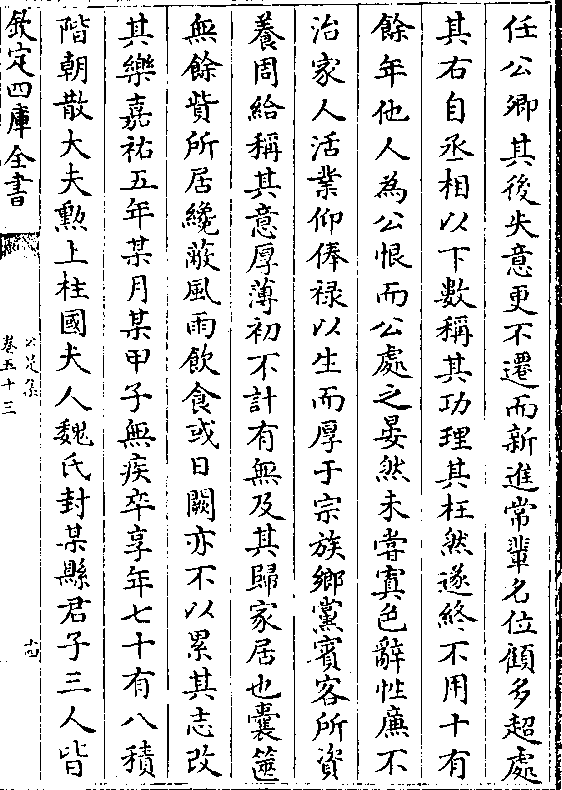 任公卿其後失意更不遷而新進常輩名位顧多超處
其右自丞相以下數稱其功理其枉然遂終不用十有
餘年他人為公恨而公處之晏然未嘗寘色辭性廉不
治家人活業仰俸祿以生而厚于宗族鄉黨賓客所資
養周給稱其意厚薄初不計有無及其歸家居也囊篋
無餘貲所居纔蔽風雨飲食或日闕亦不以累其志改
其樂嘉祐五年某月某甲子無疾卒享年七十有八積
階朝散大夫勲上柱國夫人魏氏封某縣君子三人皆
欽定四庫全書
公是集
卷五十三
十四